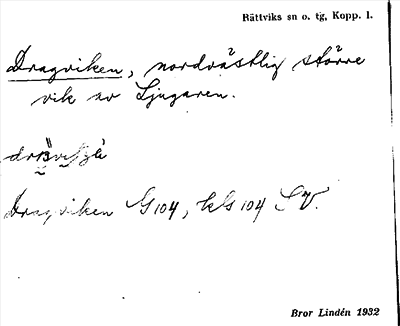 Rättviks sn o. tg, Kopp. l.
Dragviken, nordvästlig större
vik av Ljugaren.
Dragviken G104, kls 104 SV.
Bror Lindén 1932